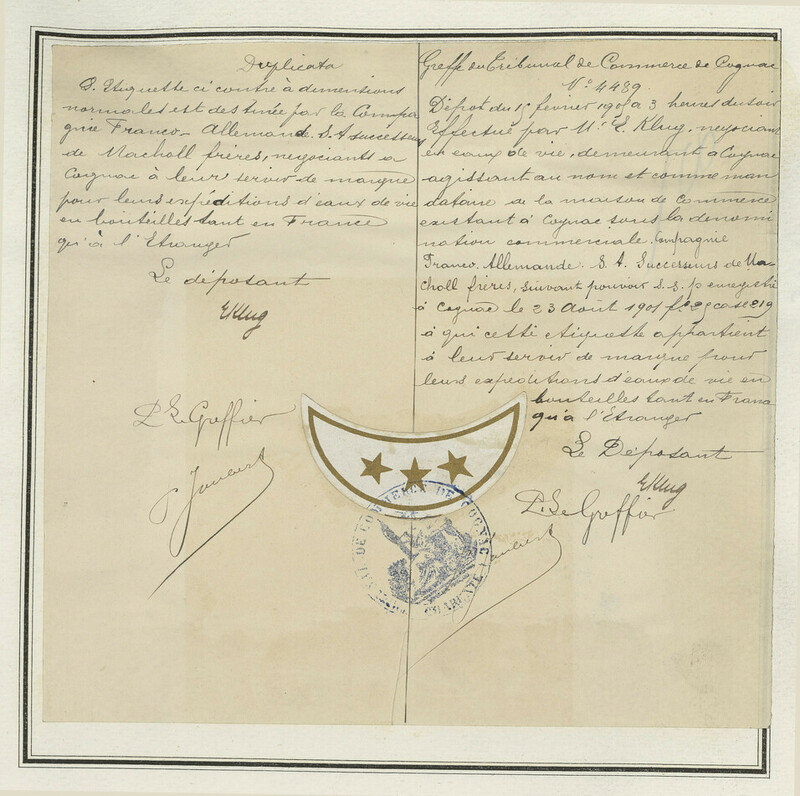 Duplicata
L'Etiquette ci contre à dimensions
normales est destinée par la Compa
gnie Franco-Allemande. S. A successeurs
de Macholl frères, negociants a
Cognac à leur servir de marque
pour leurs expéditions d'eaux de vie
en bouteilles tant en France
qu'à l'Etranger
Le déposant
EKlug
P. Le Greffier
Greffe du Tribunal de Commerce de Cognac
N° 4489.
Dépot du 15 février 190 à 3 heures du soir
Effectué par Mr. E. Klug, negociant
en eaux de vie, demeurant à Cognac
agissant au nom et comme man
dataire de la maison de Commerce
existant à Cognac sous la denomi
nation commerciale Compagnie
Franco. Allemande. S. A. Successeurs de Ma-
choll frères, suivant pouvoir s. s. p enregistré
à Cognac le 23 Août 1901 f° 25 case 219
à qui cette etiquette appartient
à leur servir de marque pour
leurs expéditions d'eaux de vie en
bouteilles tant en France
qu'à l'Etranger
Le Déposant
EKlug
P. Le Greffier
DE COMMERCE DE COGNAC
CHARENTE